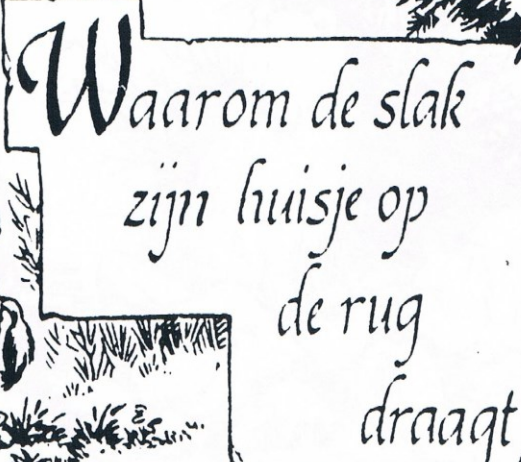 Waarom de slak
zijn huisje op
de rug
draagt